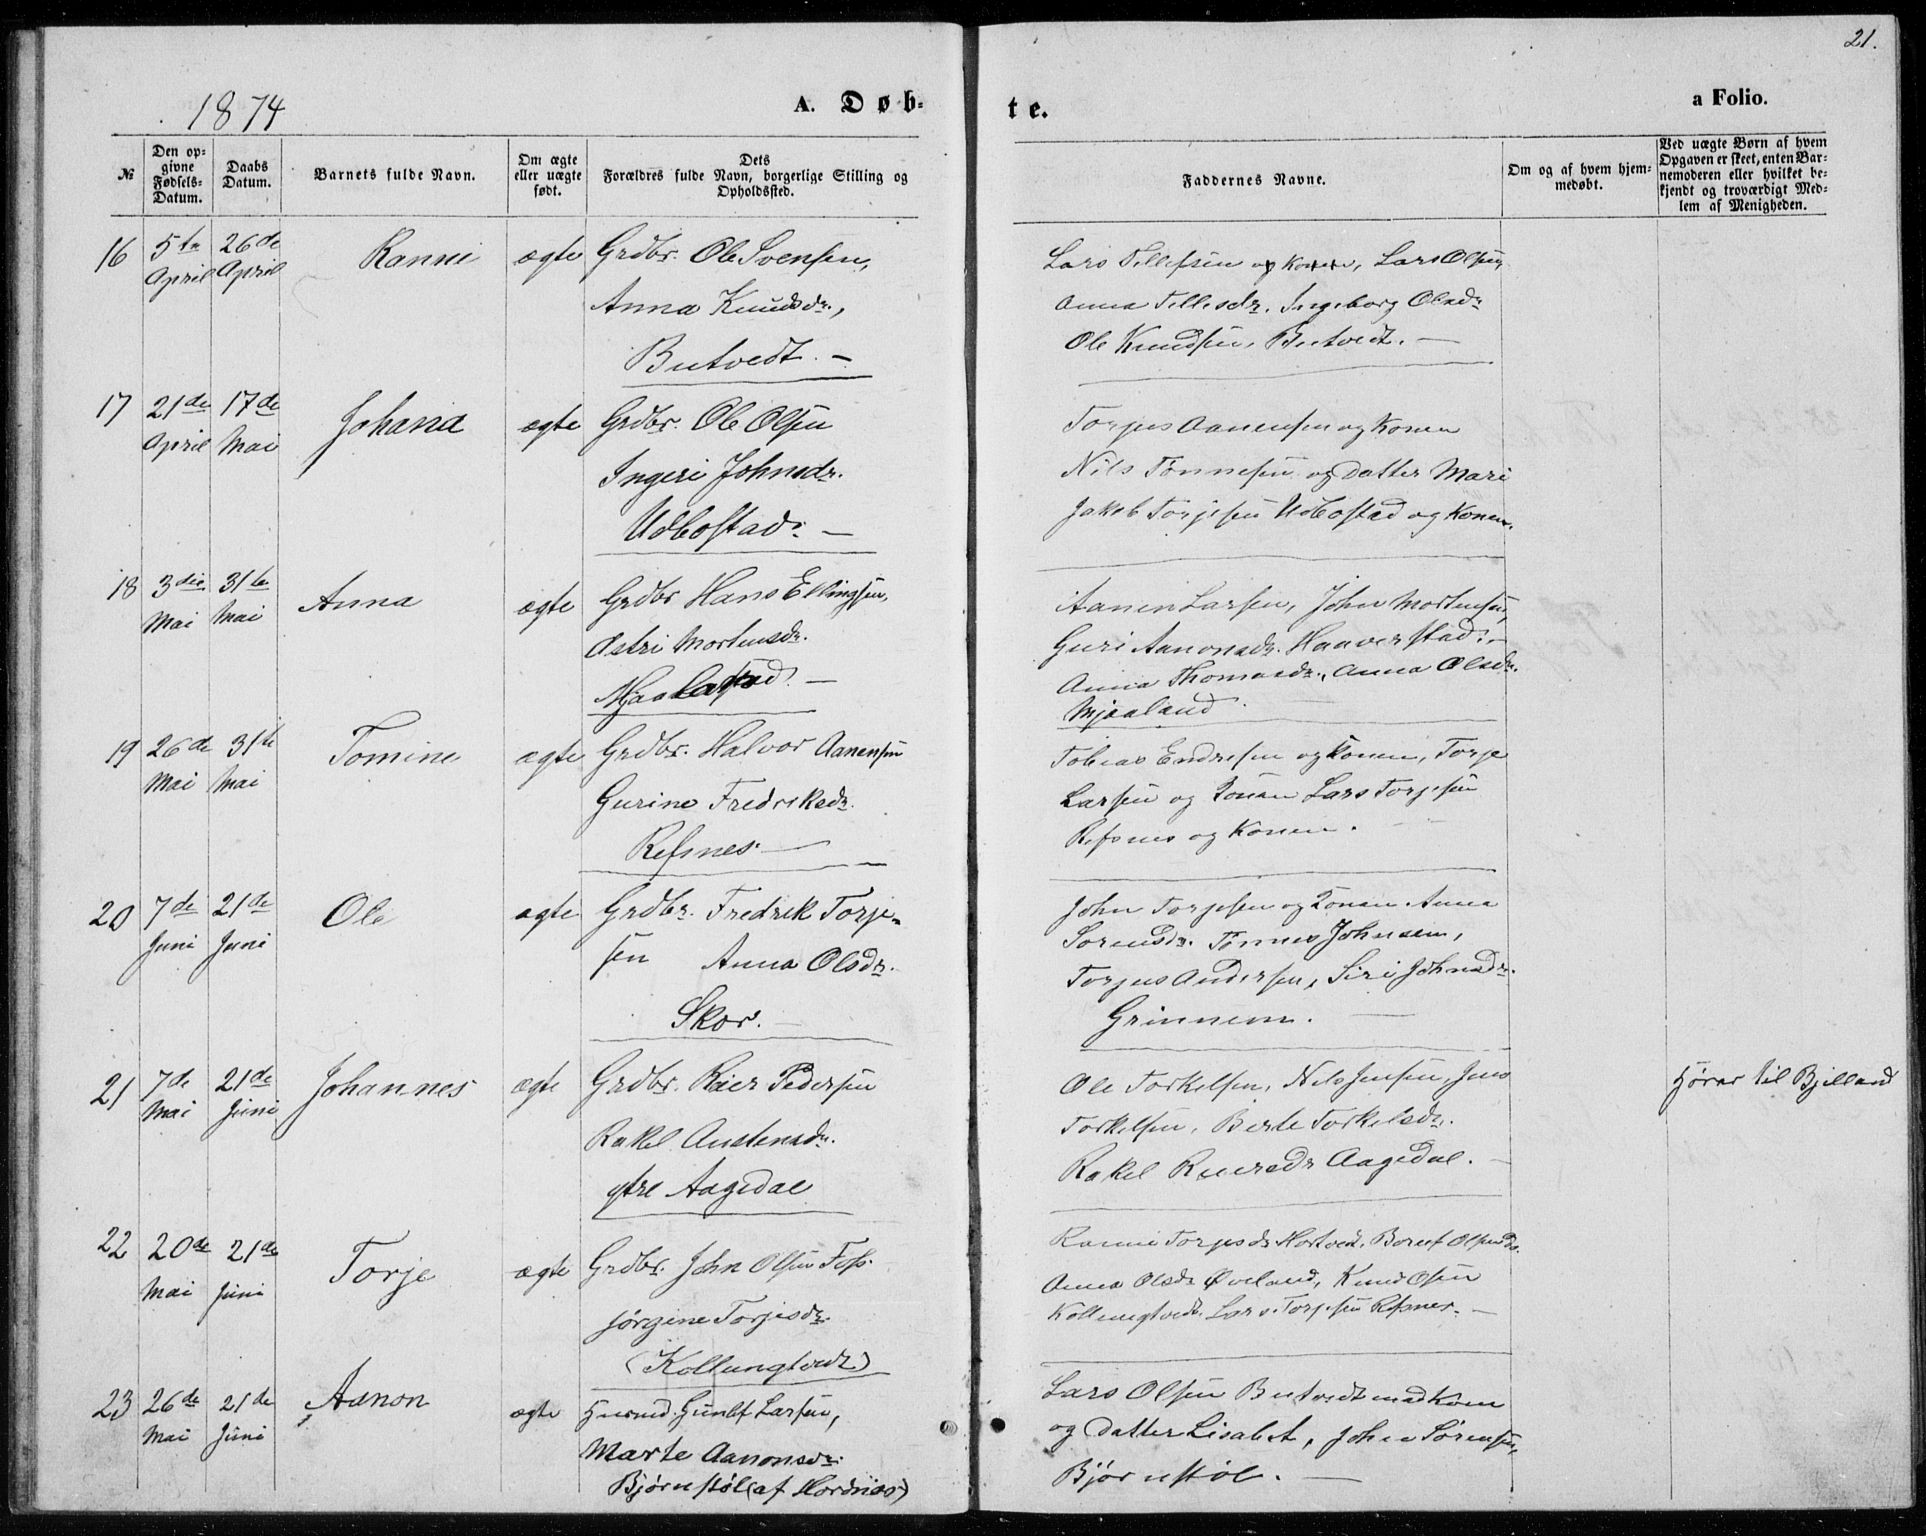 1874
A. Døb-
te.
a Folio.
21.
№
Den op-
givne
Fødsels-
Datum.
Daabs
Datum.
Barnets fulde Navn.
Om ægte
eller uægte
født.
Dets
Forældres fulde Navn, borgerlige Stilling og
Opholdssted.
Faddernes Navne.
Om og af hvem hjem-
medøbt.
Ved uægte Børn af hvem
Opgaven er skeet, enten Bar-
nemoderen eller hvilket be-
kjendt og troværdigt Med-
lem af Menigheden.
16 5te April 26de April Ranni ægte Grdbr. Ole Svensen,
Anna Knudsdr.,
Butvedt. —
Lars Tellefsen og Konen, Lars Olsen,
Anna Tellesdr. Ingeborg Olsdr
Ole Knudsen, Butvedt. —
17 21de April 17de Mai Johana ægte Grdbr. Ole Olsen
Ingeri Johnsdr.
Udbostad. —
Torjus Aanensen og Konen
Nils Tønnesen og Datter Mari
Jakob Torjesen Udbostad og Konen.
18 3die Mai 31te Mai Anna ægte Grdbr Hans Ellingsen,
Østri Mortensdr.
Aanen Larsen, John Mortensen,
Guri Aanonsdr. Haaverstad. —
Anna Thomasdr., Anna Olsdr.
Mjaaland.
19 26de Mai 31te Mai Tomine ægte Grdbr. Halvor Aanensen
Gurine Fredriksdr.
Refsnes. —
Tobias Endresen og Konen, Torje
Larsen og Konen Lars Torjesen
Refsnes og Konen.
20 7de Juni 21de Juni Ole ægte Grdbr. Fredrik Torje-
sen Anna Olsdr.
Skor. —
John Torjesen og Konen. Anna
Sørensdr. Tønnes Johnsen,
Torjus Andersen, Siri Johnsdr.
Grinnem. —
21 7de Mai 21de Juni Johannes ægte Grdbr. Reier Pedersen
Rakel Austensdr.
ytre Aagedal
Ole Torkelsen, Nils Jensen, Jens
Torkelsen, Berte Torkelsdr.
Rakel Reiersdr Aagedal. —
Hører til Bjelland
22 20de Mai 21de Juni Torje ægte Grdbr. John Olsen Foss.
Jørgine Torjesdr.
(Kollungtvedt)
Ranni Torjesdr Hortvedt,
Anna Olsdr Øveland, Knud Olsen
Kollungtvedt. Lars Torjesen Refsnes. —
23 26de Mai 21de Juni Aanon ægte Husmd. Gunlef Larsen,
Marte Aanonsdr.
Bjørnstøl (af Hordnæs)
Lars Olsen Butvedt med Kone
og Datter Lisabet, John Sørensen,
Bjørnstøl. —